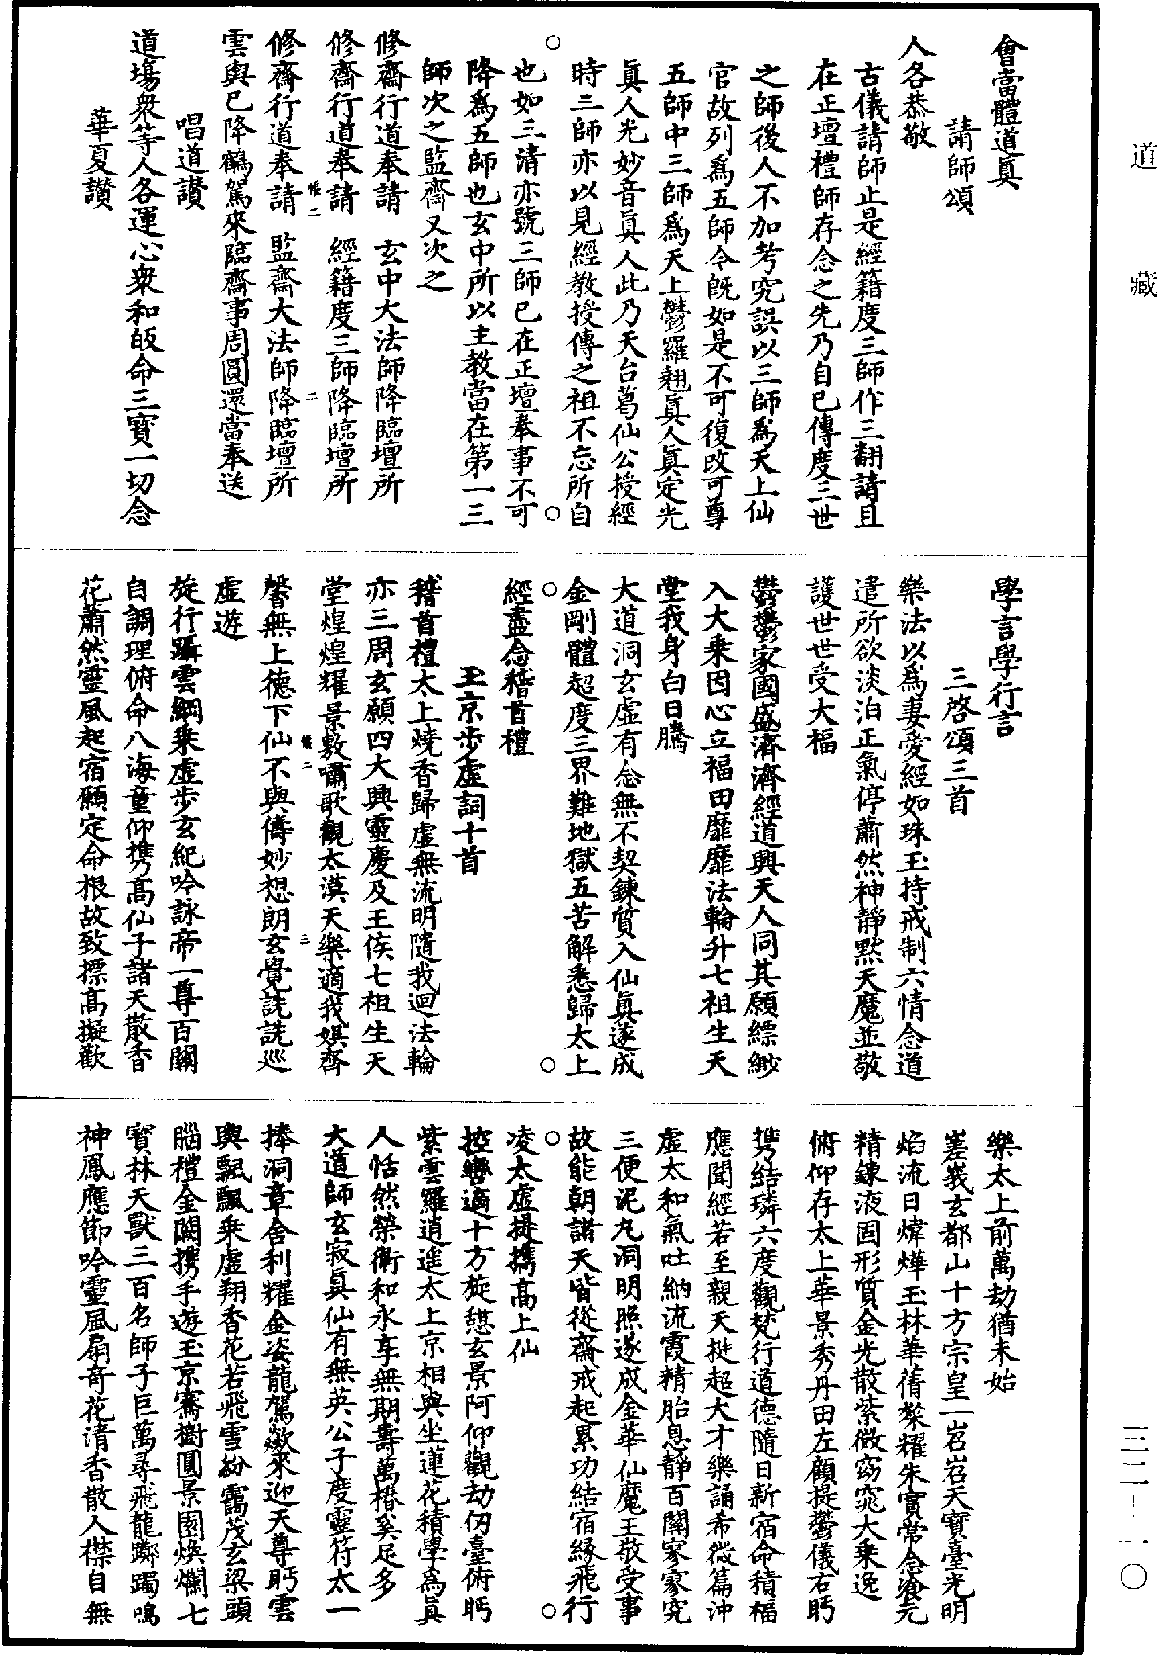 道藏
三二—一〇
會當體道真
請師頌
人各恭敬
古儀請師止是經籍度三師作三翻請且
在正壇禮師存念之先乃自已傳度三世
之師後人不加考究誤以三師為天上仙
官故列為五師今既如是不可復改可尊
五師中三師為天上鬱羅翹真人真定光
真人光妙音真人此乃天台葛仙公授經
時三師亦以見經教授傳之祖不忘所自
也如三清亦號三師已在正壇奉事不可
降為五師也玄中所以主教當在第一三
師次之監齋又次之
修齋行道奉請 玄中大法師降臨壇所
修齋行道奉請 經籍度三師降臨壇所
修齋行道奉請 監齋大法師降臨壇所
雲輿已降鶴駕來臨齋事周圓還當奉送
唱道讚
道場衆等人各運心衆和皈命三寶一切念
華夏讚
學言學行言
三啓頌三首
樂法以為妻愛經如珠玉持戒制六情念道
遣所欲淡泊正氣停蕭然神靜默天魔並敬
護世世受大福
鬱鬱家國盛濟濟經道興天人同其願縹緲
入大乘因心立福田靡靡法輪升七祖生天
堂我身白日騰
大道洞玄虛有念無不契鍊質入仙真遂成
金剛體超度三界難地獄五苦解悉歸太上
經盡念稽首禮
玉京步虛詞十首
稽首禮太上燒香歸虛無流明隨我迴法輪
亦三周玄願四大興靈慶及王侯七祖生天
堂煌煌耀景敷嘯歌觀太漠天樂適我娛齊
馨無上德下仙不與儔妙想朗玄覺詵詵巡
虛遊
旋行躡雲綱乘虛步玄紀吟詠帝一尊百關
自調理俯命八海童仰攜高仙子諸天散香
花蕭然靈風起宿願定命根故致標高擬歡
樂太上前萬劫猶未始
嵳峩玄都山十方宗皇一岧岧天寶臺光明
焰流日煒燁玉林華蒨粲耀朱實常念飡元
精鍊液固形質金光散紫微窈窕大乘逸
俯仰存太上華景秀丹田左顧提鬱儀右眄
攜結璘六度觀梵行道德隨日新宿命積福
應聞經若至親天挺超大才樂誦希微篇沖
虛太和氣吐納流霞精胎息靜百關寥寥究
三便泥丸洞明照遂成金華仙魔王敬受事
故能朝諸天皆從齋戒起累功結宿緣飛行
凌太虛提攜高上仙
控轡適十方旋憩玄景阿仰觀劫仞臺俯眄
紫雲羅逍遙太上京相與坐蓮花積學為真
人恬然榮衛和永享無期壽萬椿奚足多
大道師玄寂真仙有無英公子度靈符太一
捧洞章舍利耀金姿龍駕欻來迎天尊眄雲
輿飄飄乘虛翔香花若飛雪紛靄茂玄梁頭
腦禮金闕攜手遊玉京騫樹圓景園煥爛七
寶林天獸三百名師子巨萬尋飛龍躑躅鳴
神鳳應節吟靈風扇奇花清香散人襟自無